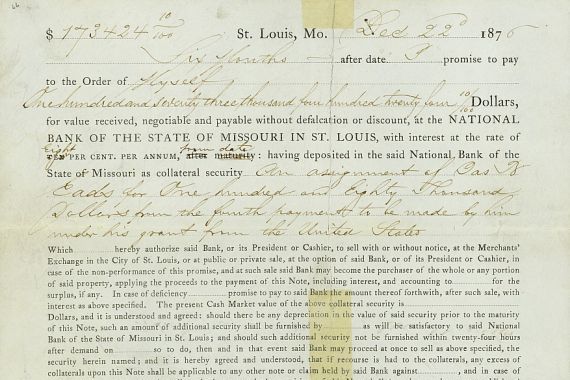 $ 173424 10/100 St. Louis, Mo. Dec 22d 1876
Six Months after date I promise to pay
to the Order of Myself
One hundred and seventy three thousand four hundred twenty four 10/100 Dollars,
for value received, negotiable and payable without defalcation or discount, at the NATIONAL
BANK OF THE STATE OF MISSOURI IN ST. LOUIS, with interest at the rate of
Eight from date
TEN PER CENT. PER ANNUM, after maturity: having deposited in the said National Bank of the
State of Missouri as collateral security An assignment of Jas B
Eads for One hundred and Eighty Thousand
Dollars from the fourth payment to be made by him
under his grant from the United States
Which hereby authorize said Bank, or its President or Cashier, to sell with or without notice, at the Merchants'
Exchange in the City of St. Louis, or at public or private sale, at the option of said Bank, or of its President or Cashier, in
case of the non-performance of this promise, and at such sale said Bank may become the purchaser of the whole or any portion
of said property, applying the proceeds to the payment of this Note, including interest, and accounting to for the
surplus, if any. In case of deficiency promise to pay to said Bank the amount thereof forthwith, after such sale, with
interest as above specified. The present Cash Market value of the above collateral security is
Dollars, and it is understood and agreed: should there be any depreciation in the value of said security prior to the maturity
of this Note, such an amount of additional security shall be furnished by as will be satisfactory to said National
Bank of the State of Missouri in St. Louis; and should such additional security not be furnished within twenty-four hours
after demand on so to do, then and in that event said Bank may proceed at once to sell as above specified, the
security herein named; and it is hereby agreed and understood, that if recourse is had to the collaterals, any excess of
collaterals upon this Note shall be applicable to any other note or claim held by said Bank against , and in case of